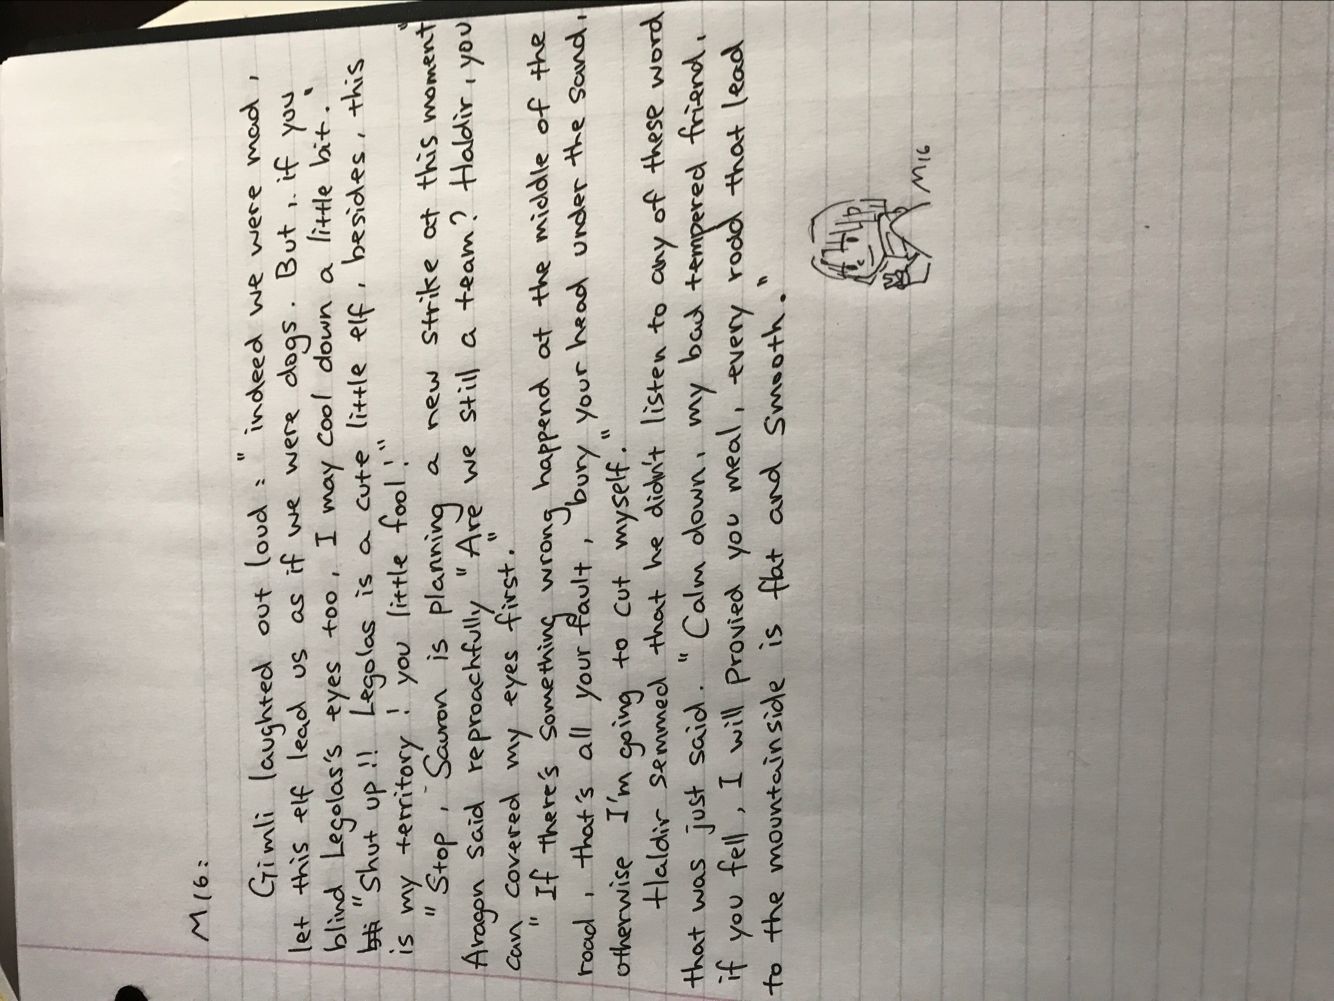 M16:
Gimli laughted out loud : " indeed we were mad ,
let this elf lead us as if we were dogs . But , . if you
blind Legolas's eyes too , I may cool down a little bit . "
"Shut up !! Legolas is a cute little elf , besides , this
is my territory ! you little fool ! "
" Stop , Sauron is planning a new strike at this moment"
Aragon said reproachfully "Are we still a team? Haldir , you
can covered my eyes first."
" If there's something wrong happend at the middle of the
road , that's all your fault , bury your head under the sand ,
otherwise I'm going to cut myself."
Haldir semmed that he didn't listen to any of these word
that was just said. " Calm down , my bad tempered friend ,
if you fell , I will provied you meal , every rodd that lead
to the mountainside is flat and smooth."
M16